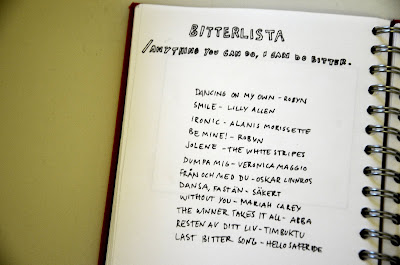 BITTERLISTA
/ANYTHING YOU CAN DO, I CAM DO BITTER.
DANCING ON MY OWN - ROBYN
SMILE - LILLY ALLEN
IRONIC - ALANIS MORISSETTE
BE MINE! - ROBYN
JOLENE - THE WHITE STRIPES
DUMPA MIG - VERONICA MAGGIO
FRÅN OCH MED DU - OSKAR LINNROS
DANSA, FASTÄN - SÄKERT
WITHOUT YOU - MARIAH CAREY
THE WINNER TAKES IT ALL - ABBA
RESTEN AV DITT LIV - TIMBUKTU
LAST BITTER SONG - HELLO SAFERIDE